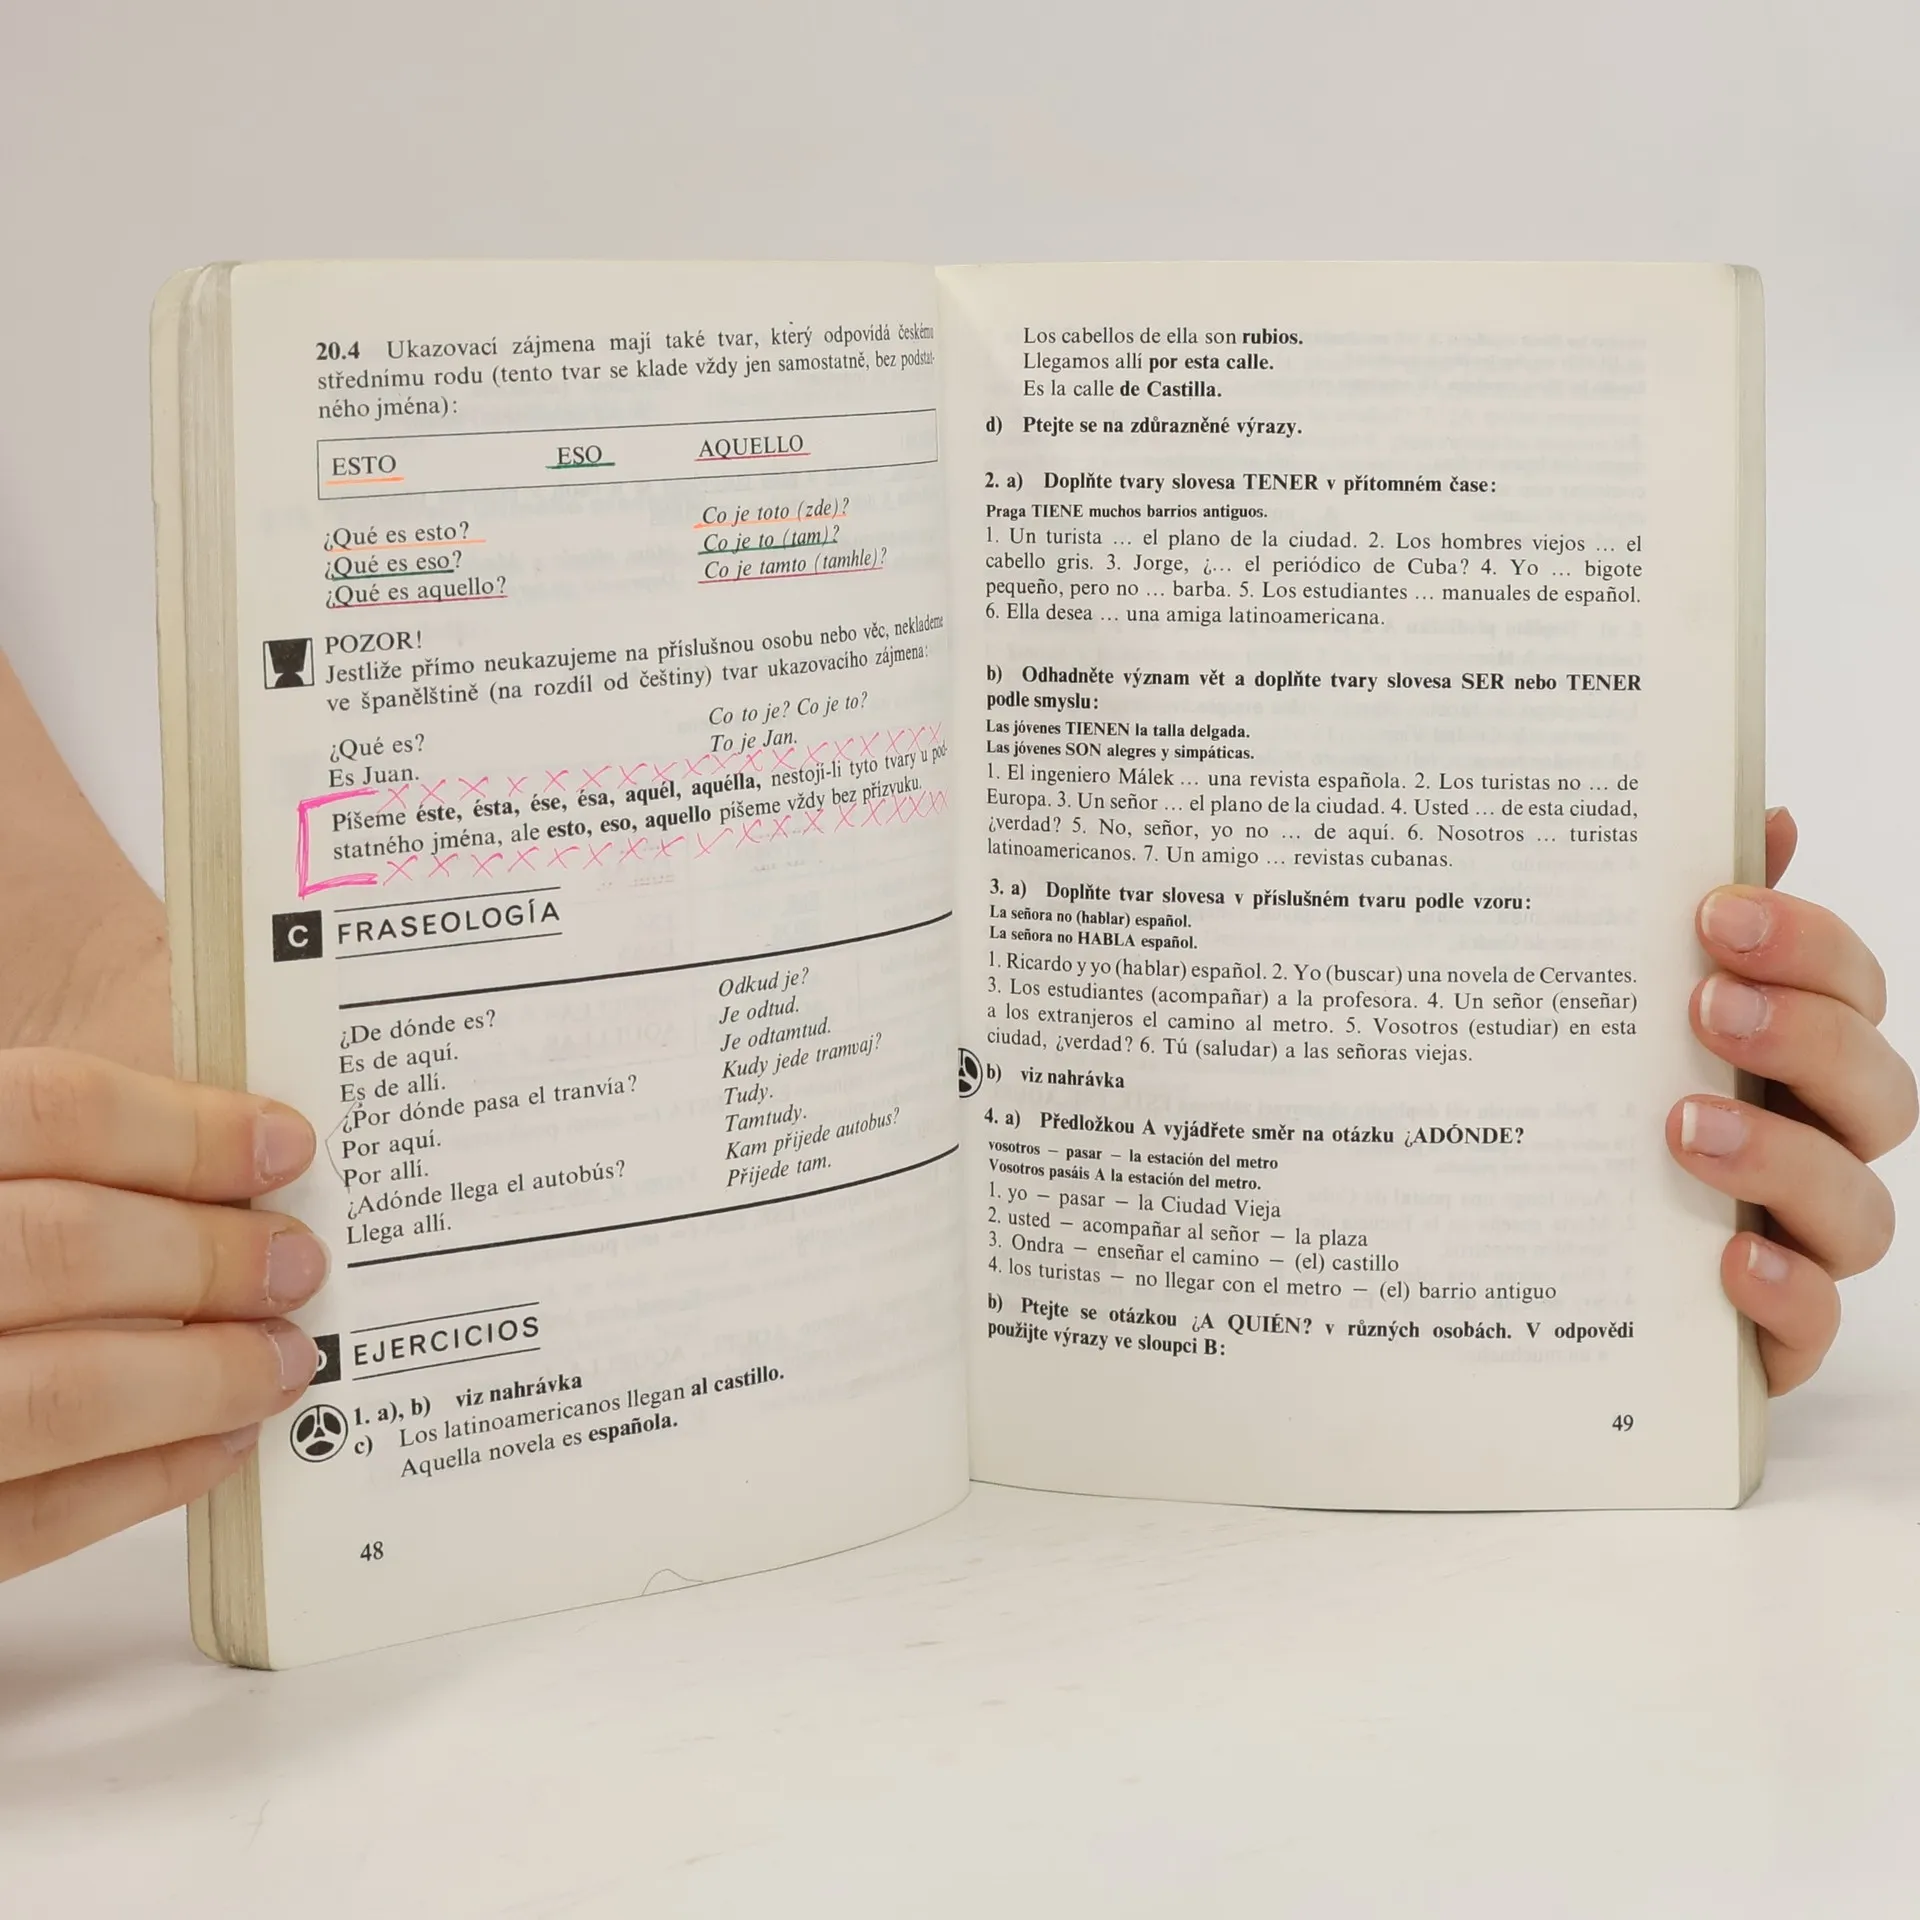 20.4 Ukazovací zájmena mají také tvar, který odpovídá českému
střednímu rodu (tento tvar se klade vždy jen samostatně, bez podstat-
ného jména):
ESTO ESO AQUELLO
¿Qué es esto? Co je toto (zde)?
¿Qué es eso? Co je to (tam)?
¿Qué es aquello? Co je tamto (tamhle)?
POZOR!
Jestliže přímo neukazujeme na příslušnou osobu nebo věc, neklademe
ve španělštině (na rozdíl od češtiny) tvar ukazovacího zájmena:
¿Qué es? Co to je? Co je to?
Es Juan. To je Jan.
Píšeme éste, ésta, ése, ésa, aquél, aquélla, nestojí-li tyto tvary u pod-
statného jména, ale esto, eso, aquello píšeme vždy bez přízvuku.
C FRASEOLOGÍA
¿De dónde es? Odkud je?
Es de aquí. Je odtud.
Es de allí. Je odtamtud.
¿Por dónde pasa el tranvía? Kudy jede tramvaj?
Por aquí. Tudy.
Por allí. Tamtudy.
¿Adónde llega el autobús? Kam přijede autobus?
Llega allí. Přijede tam.
D EJERCICIOS
1. a), b) viz nahrávka
c) Los latinoamericanos llegan al castillo.
Aquella novela es española.
48
Los cabellos de ella son rubios.
Llegamos allí por esta calle.
Es la calle de Castilla.
d) Ptejte se na zdůrazněné výrazy.
2. a) Doplňte tvary slovesa TENER v přítomném čase:
Praga TIENE muchos barrios antiguos.
1. Un turista ... el plano de la ciudad. 2. Los hombres viejos ... el
cabello gris. 3. Jorge, ¿... el periódico de Cuba? 4. Yo ... bigote
pequeño, pero no ... barba. 5. Los estudiantes ... manuales de español.
6. Ella desea ... una amiga latinoamericana.
b) Odhadněte význam vět a doplňte tvary slovesa SER nebo TENER
podle smyslu:
Las jóvenes TIENEN la talla delgada.
Las jóvenes SON alegres y simpáticas.
1. El ingeniero Málek ... una revista española. 2. Los turistas no ... de
Europa. 3. Un señor ... el plano de la ciudad. 4. Usted ... de esta ciudad,
¿verdad? 5. No, señor, yo no ... de aquí. 6. Nosotros ... turistas
latinoamericanos. 7. Un amigo ... revistas cubanas.
3. a) Doplňte tvar slovesa v příslušném tvaru podle vzoru:
La señora no (hablar) español.
La señora no HABLA español.
1. Ricardo y yo (hablar) español. 2. Yo (buscar) una novela de Cervantes.
3. Los estudiantes (acompañar) a la profesora. 4. Un señor (enseñar)
a los extranjeros el camino al metro. 5. Vosotros (estudiar) en esta
ciudad, ¿verdad? 6. Tú (saludar) a las señoras viejas.
b) viz nahrávka
4. a) Předložkou A vyjádřete směr na otázku ¿ADÓNDE?
vosotros – pasar – la estación del metro
Vosotros pasáis A la estación del metro.
1. yo – pasar – la Ciudad Vieja
2. usted – acompañar al señor – la plaza
3. Ondra – enseñar el camino – (el) castillo
4. los turistas – no llegar con el metro – (el) barrio antiguo
b) Ptejte se otázkou ¿A QUIÉN? v různých osobách. V odpovědi
použijte výrazy ve sloupci B:
49